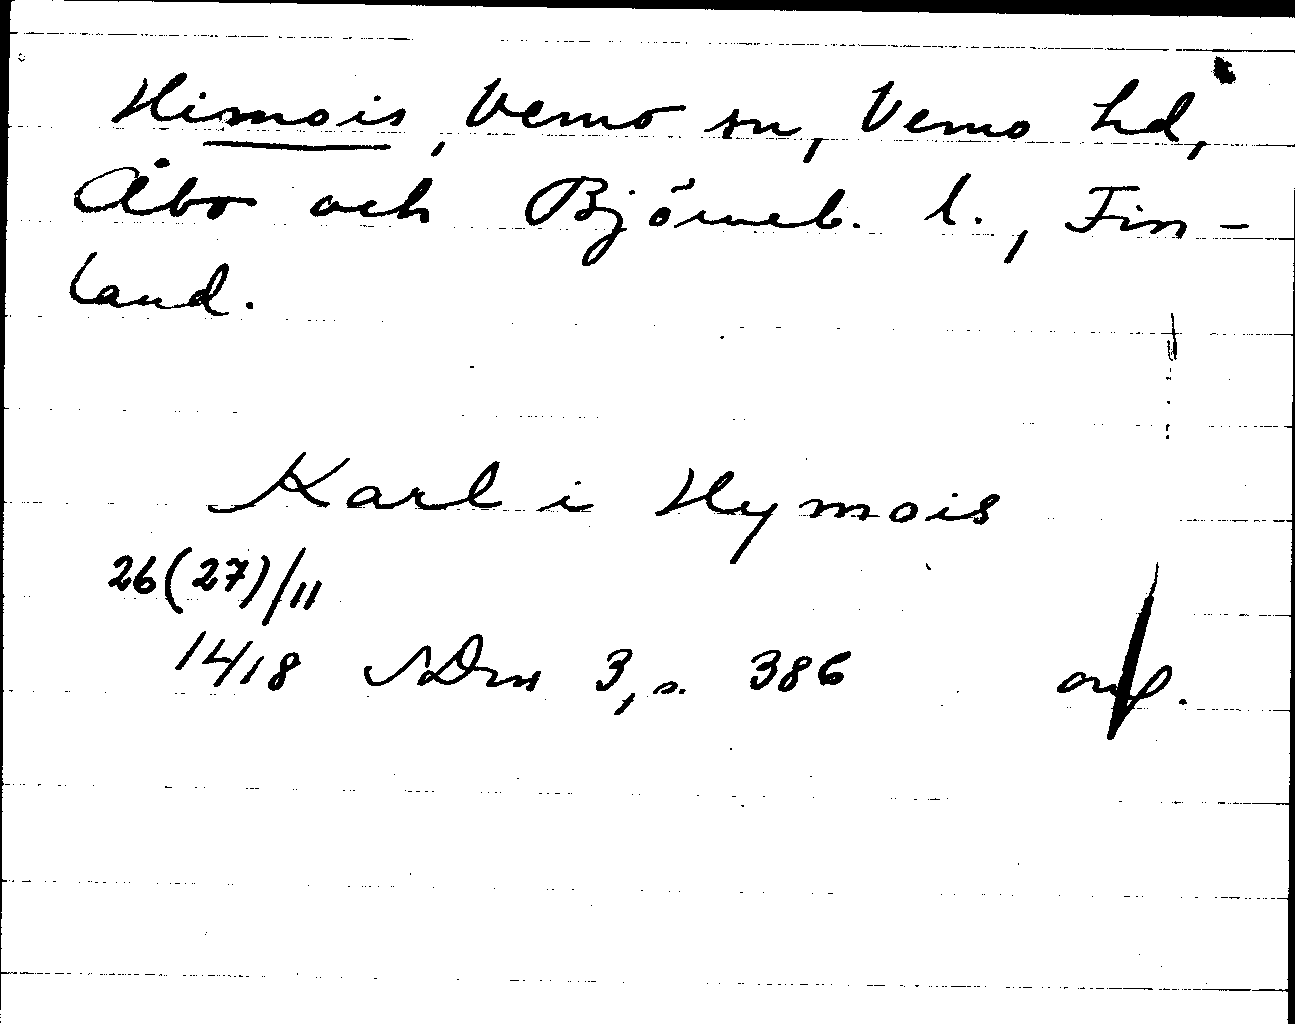 Himois, Vemo sn, Vemo hd,
Åbo och Björneb. l., Fin-
land.
Karl i Hymois
26(27)/11
1418 SDns 3, s. 386 or.